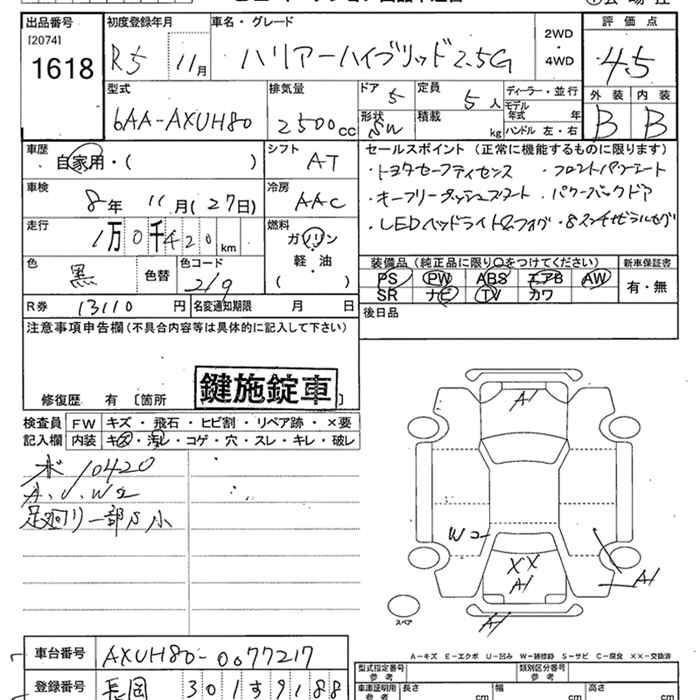 出品番号 初度登録年月 車名・グレード 評価点
[2074]
1618 R5 11月 ハリアーハイブリッド2.5G 2WD・4WD 4.5
型式 排気量 ドア 定員 ディーラー・並行 外装 内装
6AA-AXUH80 2500cc 5 5人 モデル年式 年 B B
形状 SW 積載 kg ハンドル 左・右
車歴 シフト セールスポイント (正常に機能するものに限ります)
自家用・( ) AT ・トヨタセーフティセンス ・フロントパワーシート
車検 冷房 ・キーフリープッシュスタート ・パワーバックドア
8年 11月(27日) AAC
走行 燃料 ・LEDヘッドライト&フォグ
1万0千420km ガソリン
軽・油
( )
色 色替 色コード 装備品(純正品に限り〇をつけてください) 新車保証書
黒 219 PS PW ABS エアB AW 有・無
SR ナビ TV カワ
R券 13110円 名変通知期限 月 日 後日品
注意事項申告欄(不具合内容等は具体的に記入して下さい)
鍵施錠車
修復歴 有 〔箇所 〕
検査員 FW キズ・飛石・ヒビ割・リペア跡・×要
記入欄 内装 キズ・汚レ・コゲ・穴・スレ・キレ・破レ
メ 10420
A.U.W2
足廻り一部S小
A1
W2
XX
A1
A1
A1
スペア
A-キズ E-エクボ U-凹み W-補修跡 S-サビ C-腐食 XX-交換済
車台番号 AXUH80-0077217
型式指定番号 参考 類別区分番号 参考
登録番号 長岡 301 す 9188
車庫証明用 参考 長さ cm 幅 cm 高さ cm